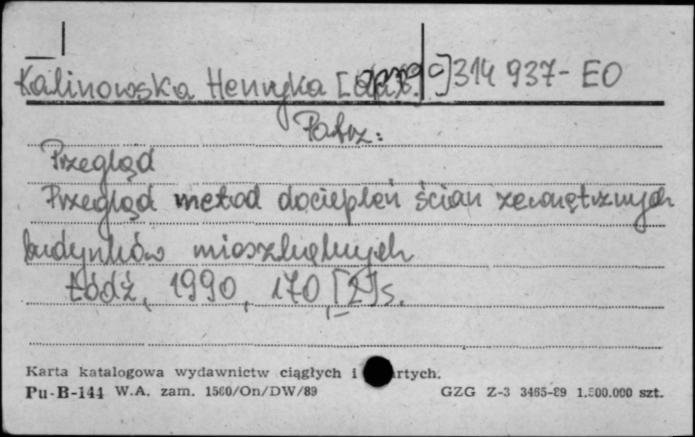 Kalinowska Henryka [oprac.] 314 937-EO
Patrz:
Przegląd
Przegląd metod dociepleń ścian zewnętrznych
budynków mieszkalnych
Łódź, 1990, 170, [2] s.
Karta katalogowa wydawnictw ciągłych i rtych.
Pu-B-144 W.A. zam. 1560/On/DW/89 GZG Z-3 3465-89 1.500.000 szt.